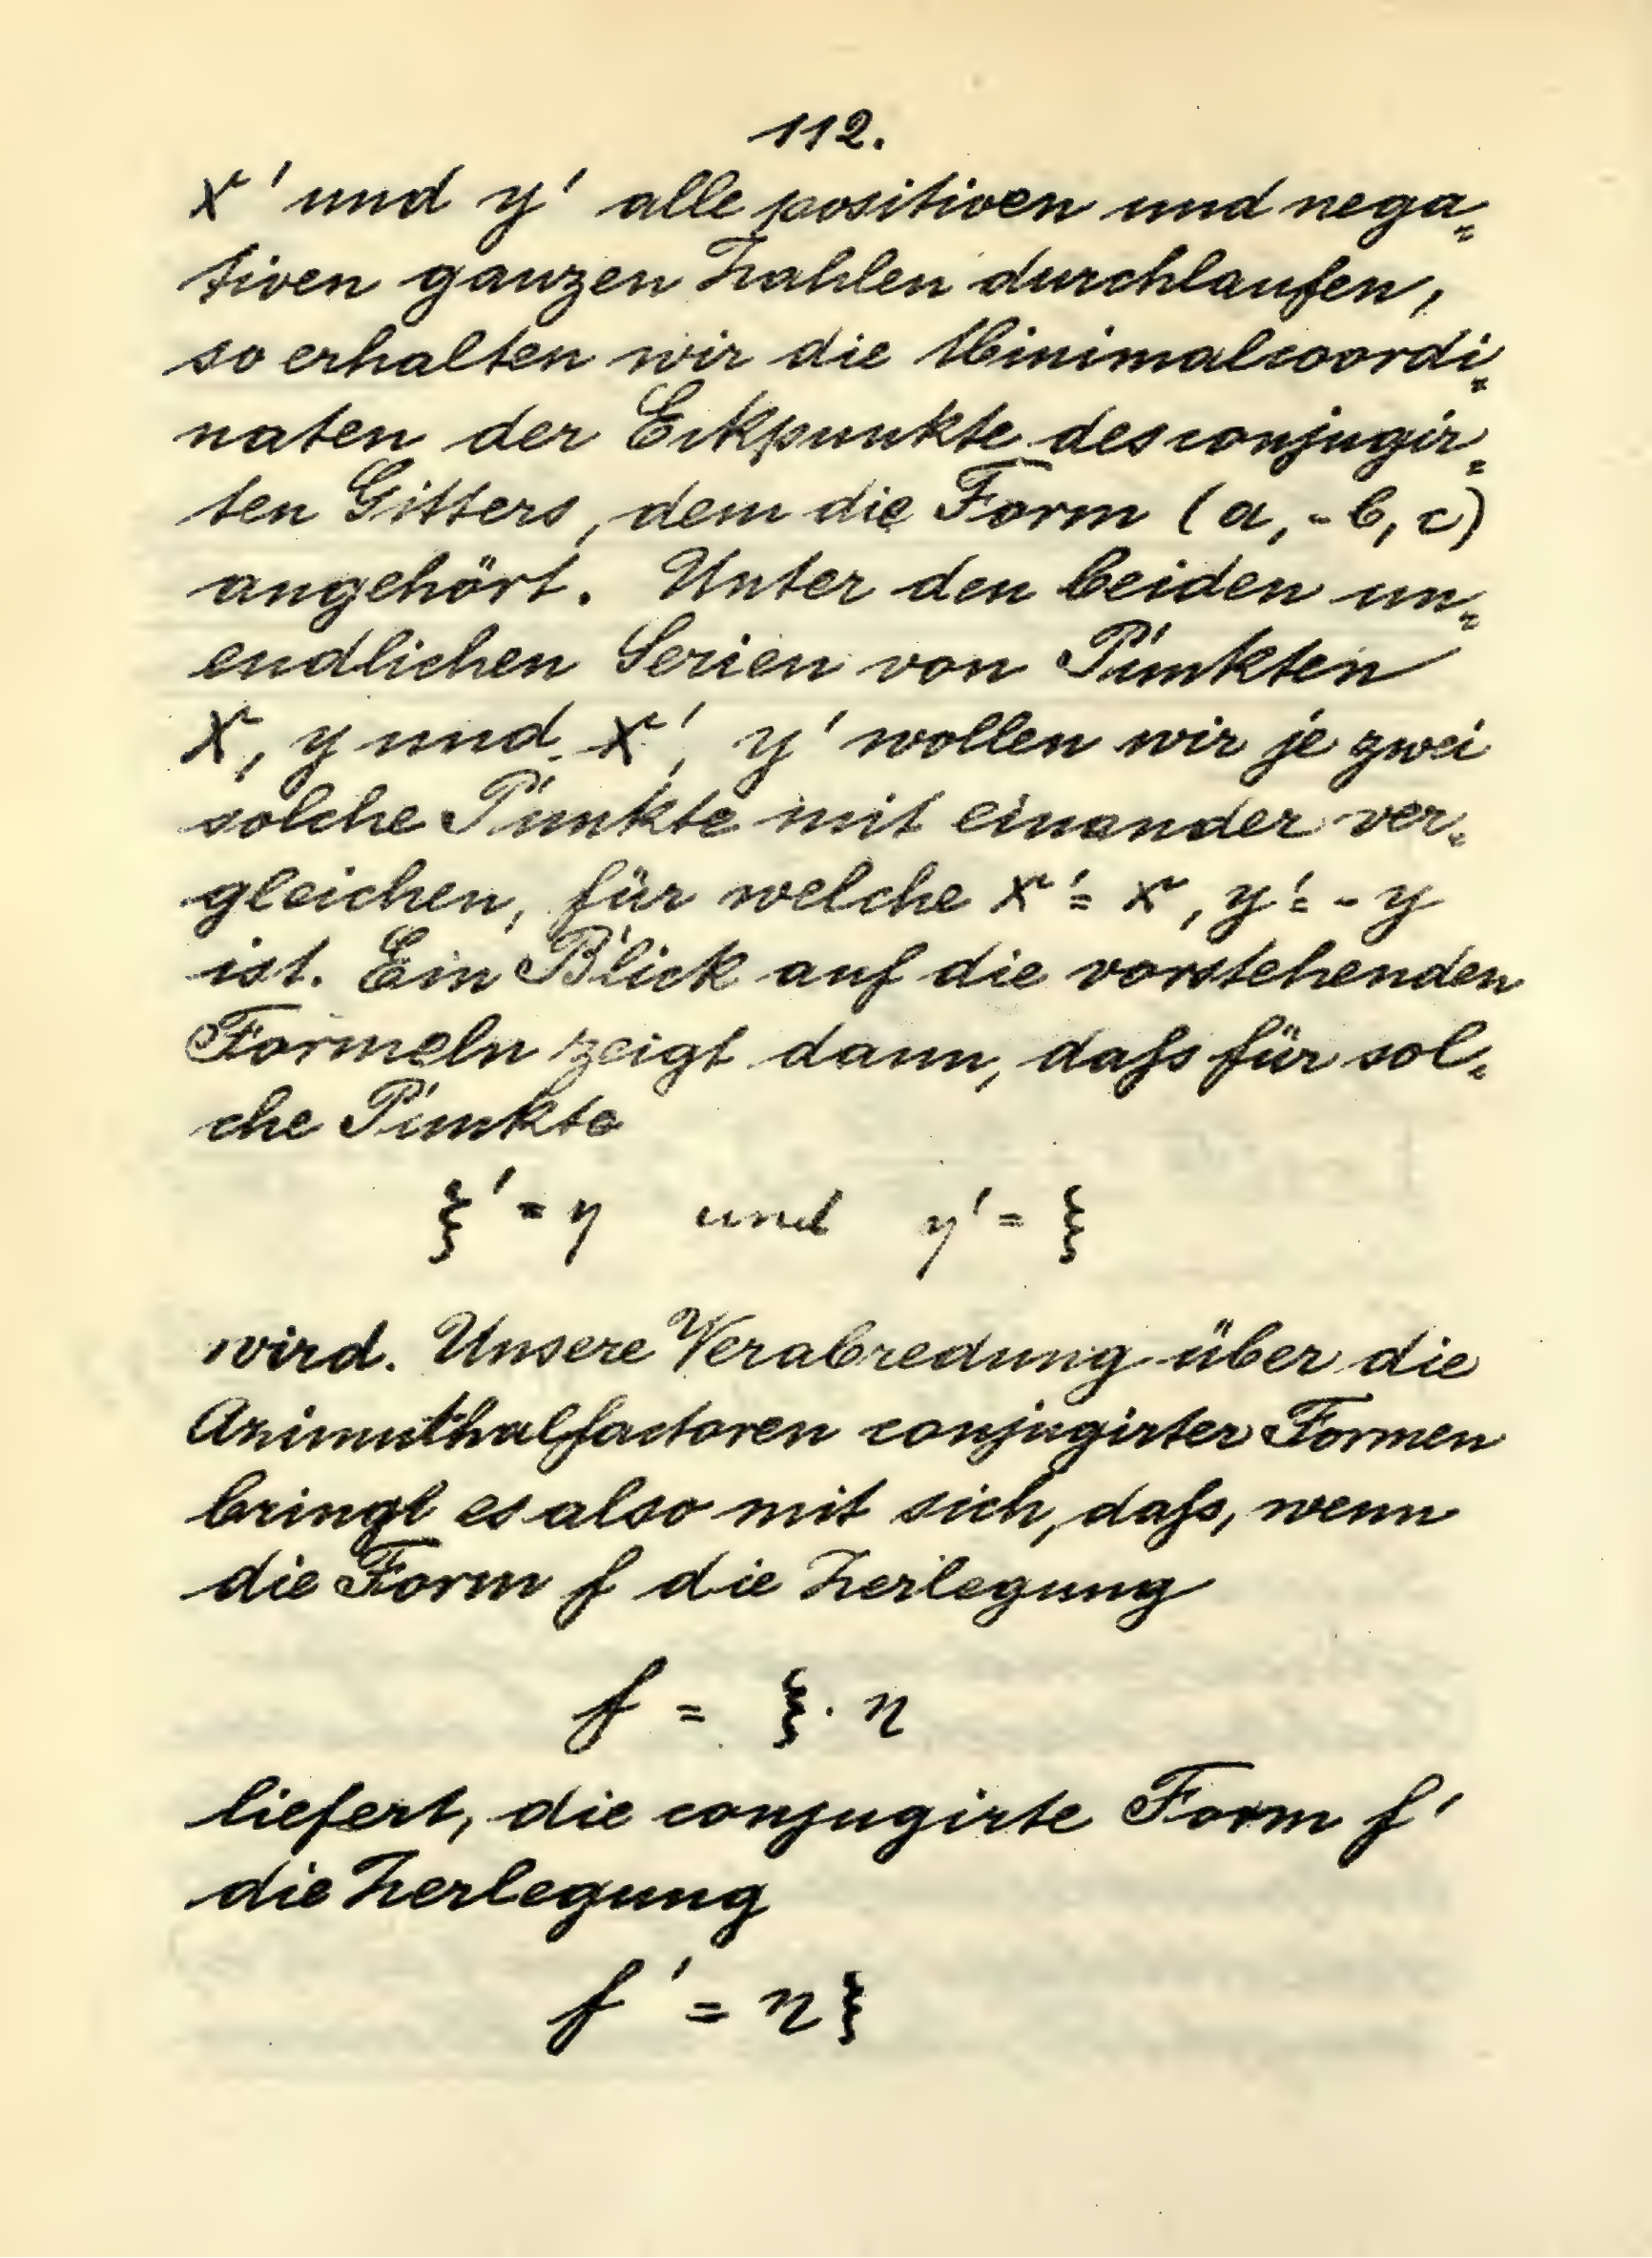 112.
x' und y' alle positiven und nega=
tiven ganzen Zahlen durchlaufen,
so erhalten wir die Minimalcoordi=
naten der Eckpunkte des conjugir=
ten Gitters, dem die Form (a, -b, c)
angehört. Unter den beiden un=
endlichen Serien von Punkten
x, y und x', y' wollen wir je zwei
solche Punkte mit einander ver=
gleichen, für welche x' = x, y' = - y
ist. Ein Blick auf die vorstehenden
Formeln zeigt dann, daſs für sol=
che Punkte
ξ' = η und η' = ξ
wird. Unsere Verabredung über die
Azimuthalfactoren conjugirter Formen
bringt es also mit sich, daſs, wenn
die Form f die Zerlegung
f = ξ · η
liefert, die conjugirte Form f'
die Zerlegung
f' = η ξ